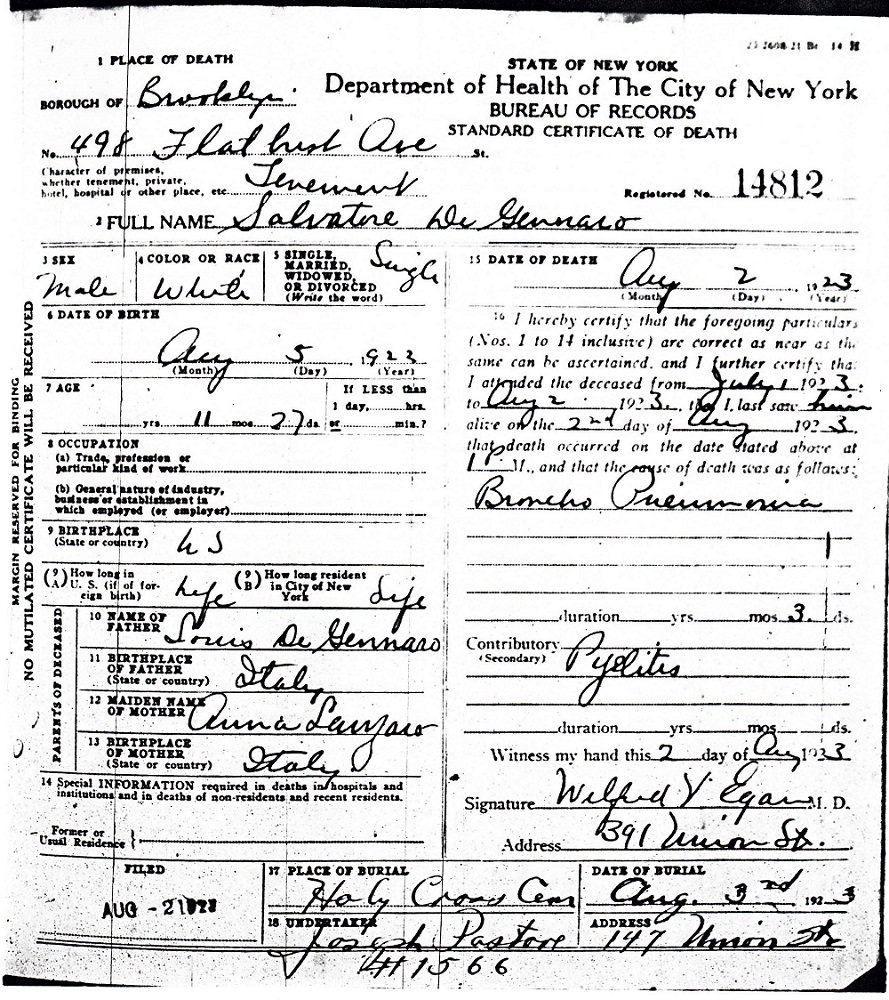 1 PLACE OF DEATH
BOROUGH OF Brooklyn.
No. 498 Flatbush Ave St.
Character of premises,
whether tenement, private,
hotel, hospital or other place, etc. Tenement
STATE OF NEW YORK
Department of Health of The City of New York
BUREAU OF RECORDS
STANDARD CERTIFICATE OF DEATH
Registered No. 14812
2 FULL NAME Salvatore De Gennaro
3 SEX
Male
4 COLOR OR RACE
White
5 SINGLE,
MARRIED,
WIDOWED,
OR DIVORCED
(Write the word)
Single
6 DATE OF BIRTH
Aug 5 1922
(Month) (Day) (Year)
7 AGE
If LESS than
1 day, hrs.
yrs. 11 mos. 27 ds. or min.?
8 OCCUPATION
(a) Trade, profession or
particular kind of work
(b) General nature of industry,
business or establishment in
which employed (or employer)
9 BIRTHPLACE
(State or country) U S
(9 A) How long in
U. S. (if of for-
eign birth) Life
(9 B) How long resident
in City of New
York Life
PARENTS OF DECEASED
10 NAME OF
FATHER Louis De Gennaro
11 BIRTHPLACE
OF FATHER
(State or country) Italy
12 MAIDEN NAME
OF MOTHER Anna
13 BIRTHPLACE
OF MOTHER
(State or country) Italy
14 Special INFORMATION required in deaths in hospitals and
institutions and in deaths of non-residents and recent residents.
Former or
Usual Residence
15 DATE OF DEATH
Aug 2 1923
(Month) (Day) (Year)
16 I hereby certify that the foregoing particulars
(Nos. 1 to 14 inclusive) are correct as near as the
same can be ascertained, and I further certify that
I attended the deceased from July 1 1923.
to Aug 2 1923, that I last saw him
alive on the 2nd day of Aug 1923.
that death occurred on the date stated above at
1 P M., and that the cause of death was as follows:
Broncho Pneumonia
duration yrs. mos. 3 ds.
Contributory
(Secondary) Pyelitis
duration yrs. mos ds.
Witness my hand this 2 day of Aug 1923
Signature Wilfred V Egan M. D.
Address 391 Union St.
FILED
AUG - 2 1923
17 PLACE OF BURIAL
Holy Cross Cem
DATE OF BURIAL
Aug. 3rd 1923
18 UNDERTAKER
Joseph Pastore
ADDRESS
147 Union St
#1566
MARGIN RESERVED FOR BINDING
NO MUTILATED CERTIFICATE WILL BE RECEIVED